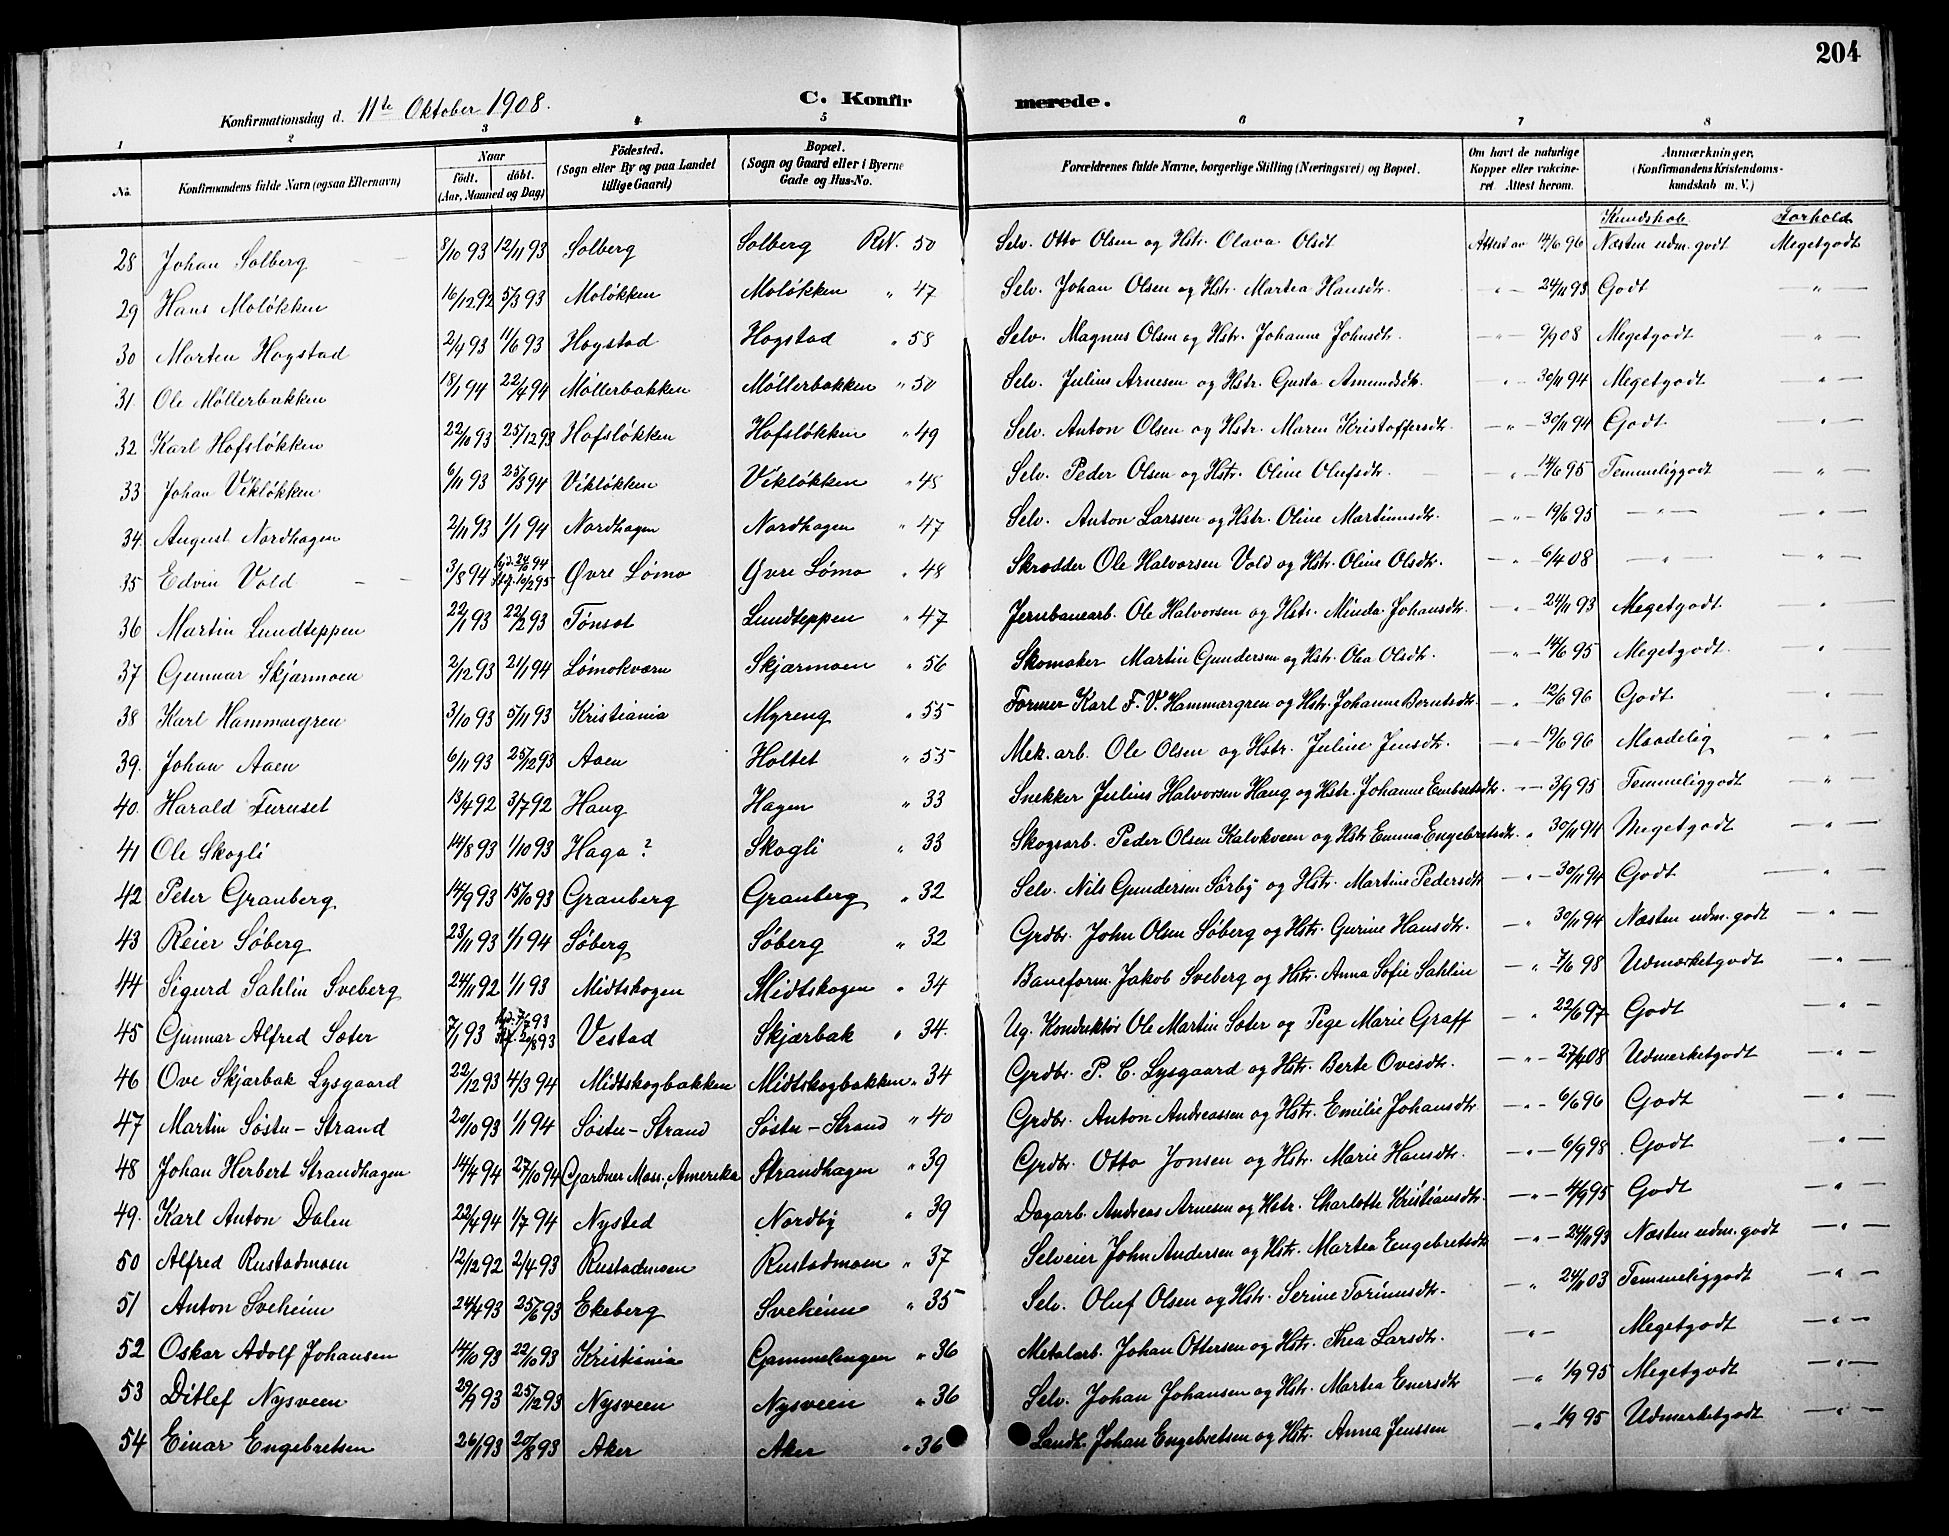 204
Konfirmationsdag d. 11te Oktober 1908.
C. Konfirmerede.
1 2 3 4 5 6 7 8
No. Konfirmandens fulde Navn (ogsaa Efternavn) Naar födt. döbt. (Aar, Maaned og Dag) Födested. (Sogn eller By og paa Landet tillige Gaard) Bopæl. (Sogn og Gaard eller i Byerne Gade og Hus-No. Forældrenes fulde Navne, borgerlige Stilling (Næringsvei) og Bopæl. Om havt de naturlige Kopper eller vakcineret. Attest herom. Anmærkninger. (Konfirmandens Kristendomskundskab m. V.)
Kundskab Forhold
28 Johan Solberg 8/10 93 12/11 93 Solberg Solberg RN. 50 Selv. Otto Olsen og Hstr. Olava Olsdt. Attest av 14/6 96 Næsten udm. godt Megetgodt
29 Hans Moløkken 16/12 92 5/3 93 Moløkken Moløkken " 47 Selv. Johan Olsen og Hstr. Martea Hansdtr. " 24/11 93 Godt "
30 Morten Hogstad 2/4 93 11/6 93 Hogstad Hogstad " 58 Selv. Magnus Olsen og Hstr. Johanne Johnsdt. " 9/9 08 Megetgodt "
31 Ole Møllerbakken 18/1 94 22/4 94 Møllerbakken Møllerbakken " 50 Selv. Julius Arnesen og Hstr. Gusta Amundsdt. " 30/11 94 Megetgodt "
32 Karl Hofsløkken 22/10 93 25/12 93 Hofsløkken Hofsløkken " 49 Selv. Anton Olsen og Hstr. Maren Kristoffersdt. " 30/11 94 Godt "
33 Johan Vikløkken 6/11 93 25/3 94 Vikløkken Vikløkken " 48 Selv. Peder Olsen og Hstr. Oline Olufsdtr. " 14/6 95 Temmeliggodt "
34. August Nordhagen 2/11 93 1/1 94 Nordhagen Nordhagen " 47 Selv. Anton Larssen og Hstr. Oline Martinusdtr. " 19/6 95 " "
35 Edvin Vold 3/8 94 Øvre Lømo Øvre Lømo " 48 Skrædder Ole Halvorsen Vold og Hstr. Oline Olsdtr. " 6/4 08 " "
36 Martin Lundteppen 22/1 93 22/2 93 Tønset Lundteppen " 47 Jernbanearb. Ole Halvorsen og Hstr. Minda Johansdtr. " 24/11 93 Megetgodt "
37 Gunnar Skjærmoen 2/12 93 21/1 94 Lømokværn Skjærmoen " 56 Skomaker Martin Gundersen og Hstr. Olea Olsdtr. " 14/6 95 Megetgodt. "
38 Karl Hammargren 3/10 93 5/11 93 Kristiania Myreng " 55 Former Karl F. V. Hammargren og Hstr. Johanne Berntsdtr. " 12/6 96 Godt "
39. Johan Aaen 6/11 93 25/12 93 Aaen Holtet " 55 Mek. arb. Ole Olsen og Hstr. Juline Jensdtr. " 19/6 96 Maadelig "
40. Harald Furuset 13/4 92 3/7 92 Haug Hagen " 33 Snekker Julius Halvorsen Haug og Hstr. Johanne Embretsdtr. " 3/9 95 Temmeliggodt "
41 Ole Skogli 14/8 93 1/10 93 Haga? Skogli " 33 Skogsarb. Peder Olsen Kalvkveen og Hstr Emma Engebretsdtr. " 30/11 94 Megetgodt "
42 Peter Granberg 14/9 93 15/10 93 Granberg Granberg " 32 Selv. Nils Gundersen Sørby og Hstr. Martine Pedersdtr " 30/11 94 Godt "
43 Reier Søberg 23/11 93 1/1 94 Søberg Søberg " 32 Grdbr. John Olsen Søberg og Hstr. Gurine Hansdtr. " 30/11 94 Næsten udm. godt "
44 Sigurd Sahlin Sveberg 24/11 92 1/1 93 Midtskogen Midtskogen " 34 Baneform. Jakob Sveberg og Hstr. Anna Sofie Sahlin " 7/6 98 Udmærketgodt "
45 Gunnar Alfred Sæter 7/1 93 Vestad Skjærbak " 34. Ug. Konduktør Ole Martin Sæter og Pege Marie Graff " 22/6 97 Godt "
46 Ove Skjærbak Lysgaard 22/12 93 4/3 94 Midtskogbakken Midtskogbakken " 34 Grdbr. P. C. Lysgaard og Hstr. Berte Ovesdtr. " 27/9 08 Udmerketgodt "
47 Martin Søstu-Strand 20/10 93 1/1 94 Søstu-Strand Søstu-Strand " 40 Grdbr. Anton Andreassen og Hstr. Emilie Johansdtr " 6/6 96 Godt "
48 Johan Herbert Strandhagen 14/4 94 27/10 94 Gardner Mass., Amerika Strandhagen " 39 Grdbr. Otto Jonsen og Hstr. Marie Hansdtr. " 6/9 98 Godt "
49. Karl Anton Dalen 22/4 94 1/7 94 Nysted Nordby " 39 Dagarb. Andreas Arnesen og Hstr. Charlotte Kristiansdtr. " 4/9 95 Godt "
50 Alfred Rustadmoen 12/12 92 2/4 93 Rustadmoen Rustadmoen " 37 Selveier John Andersen og Hstr. Martea Engebretsdtr " 24/11 93 Næsten udm. godt "
51 Anton Sveheim 24/4 93 25/6 93 Ekeberg Sveheim " 35 Selv. Oluf Olsen og Hstr. Serine Torinusdtr. " 24/11 03 Temmeliggodt "
52 Oskar Adolf Johansen 14/10 93 22/10 93 Kristiania Gammelengen " 36 Metalarb. Johan Ottersen og Hstr. Thea Larsdtr. " Megetgodt "
53 Ditlef Nysveen 29/9 93 25/12 93 Nysveen Nysveen " 36 Selv. Johan Johansen og Hstr. Martea Enersdtr " 1/9 95 Megetgodt "
54 Einar Engebretsen 26/1 93 20/8 93 Aker Aker " 36 Landh. Johan Engebretsen og Hstr. Anna Jenssen " 1/9 95 Udmerketgodt "